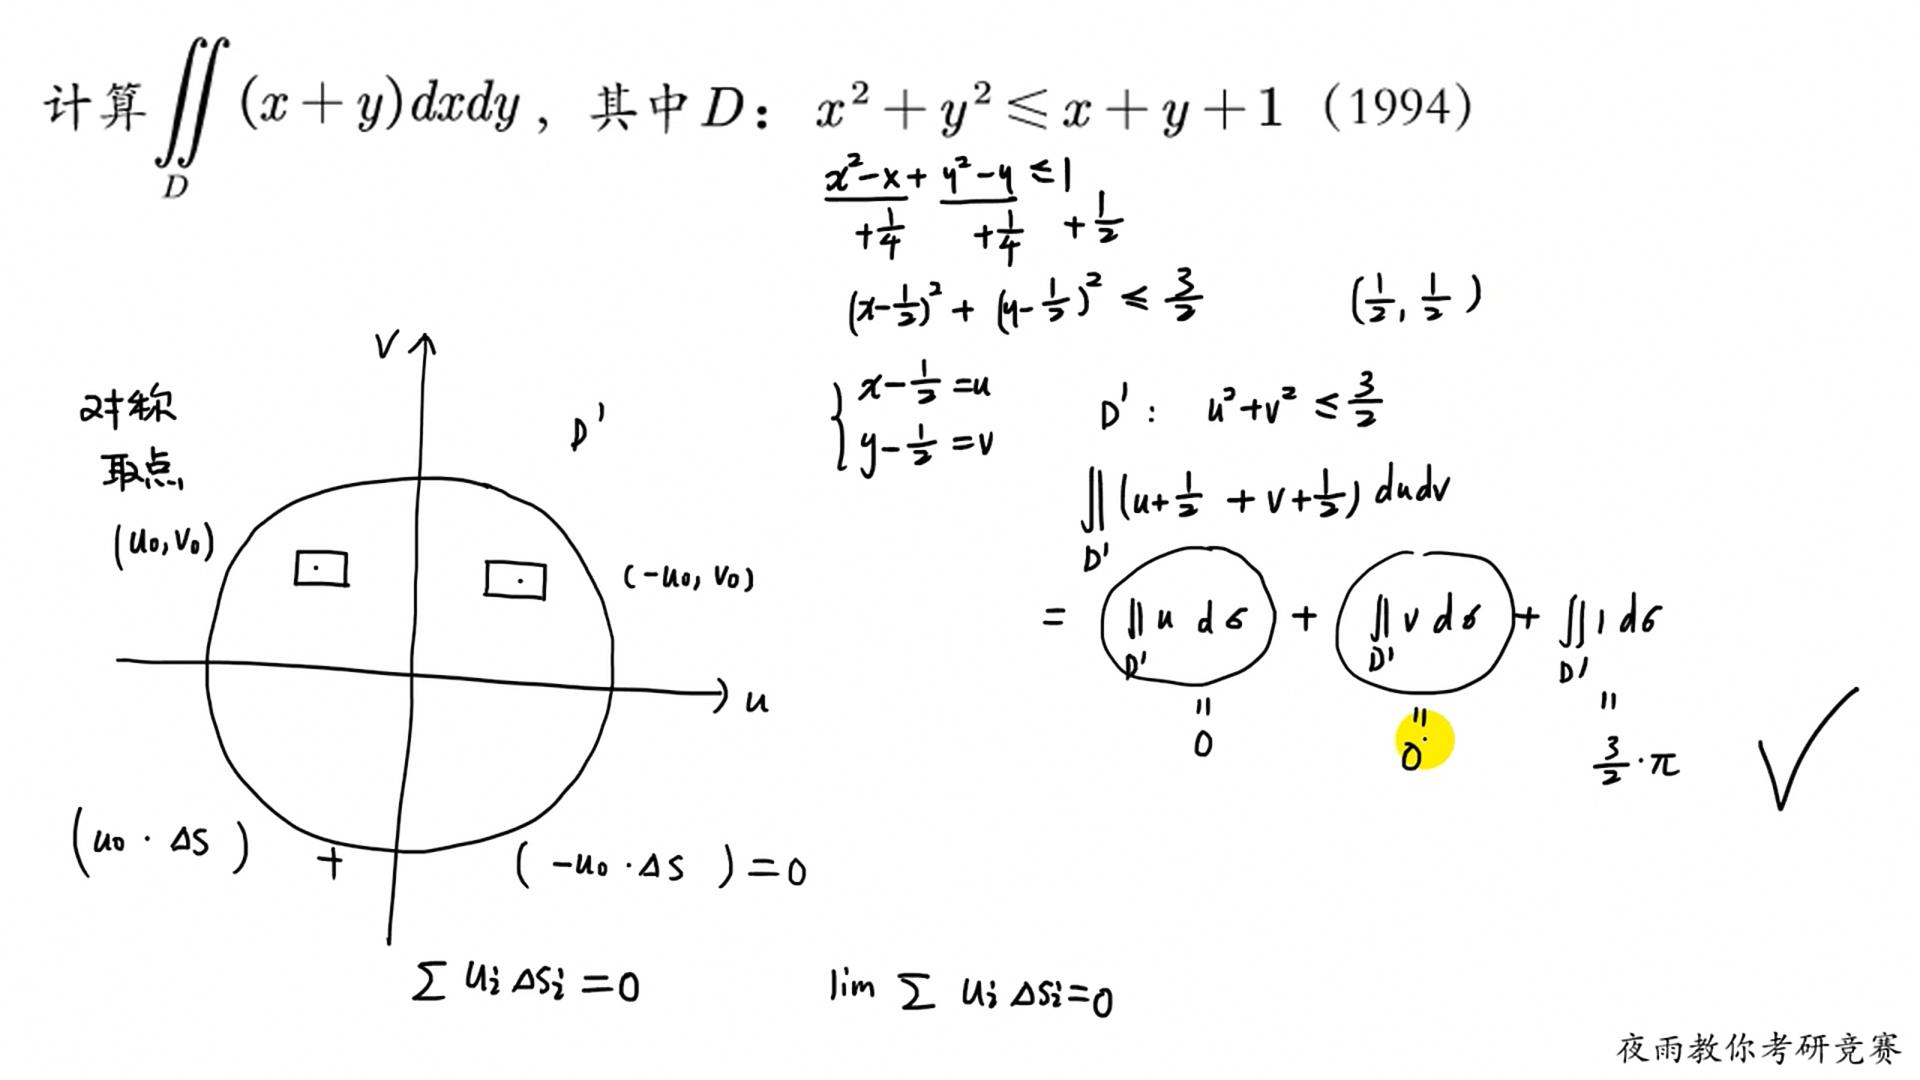 计算∬_D (x+y)dxdy，其中D：x²+y²⩽x+y+1（1994）
x²-x+y²-y≤1
+1/4 +1/4 +1/2
(x-1/2)²+(y-1/2)²≤3/2 (1/2, 1/2)
{ x-1/2=u
y-1/2=v
D': u²+v²≤3/2
∬_D' (u+1/2+v+1/2) dudv
= ∬_D' u dσ + ∬_D' v dσ + ∬_D' 1 dσ
= 0
= 0
= 3/2·π
对称
取点
V
D'
(u₀,v₀)
(-u₀,v₀)
u
(u₀·ΔS) + (-u₀·ΔS)=0
∑ uᵢΔSᵢ=0 lim ∑ uᵢΔSᵢ=0
夜雨教你考研竞赛